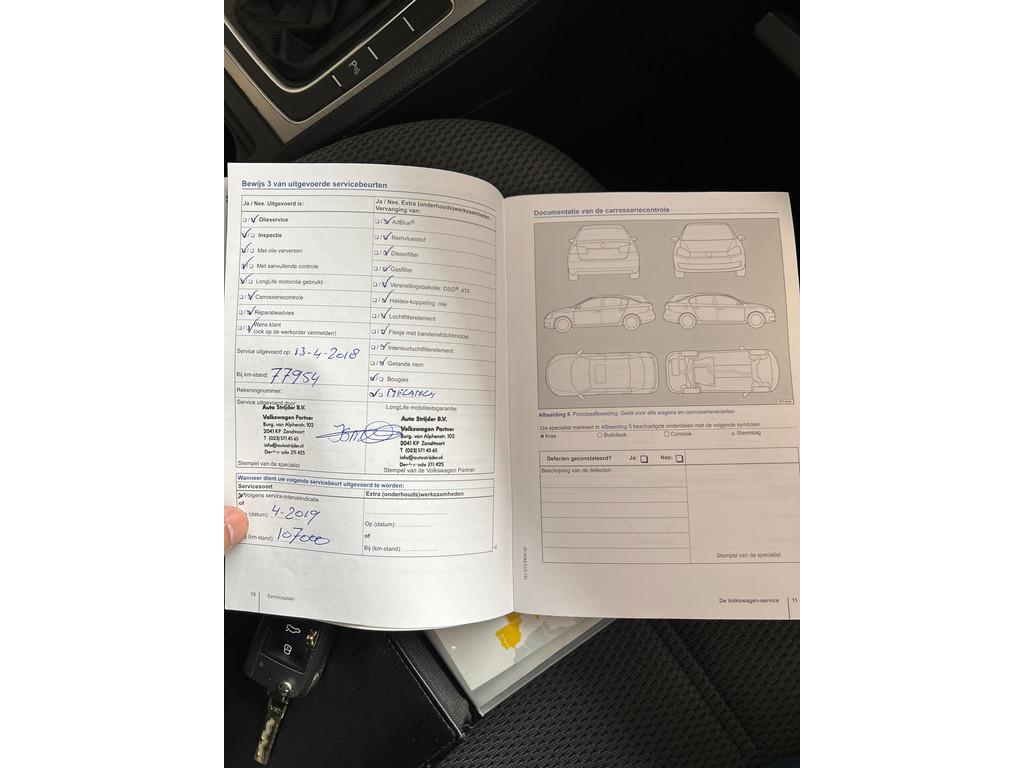 Bewijs 3 van uitgevoerde servicebeurten
Ja / Nee. Uitgevoerd is:
Olieservice
Inspectie
Met olie verversen
Met aanvullende controle
LongLife motorolie gebruikt
Carrosseriecontrole
Reparatieadvies
Wens klant
(ook op de werkorder vermelden)
Service uitgevoerd op: 13-4-2018
Bij km-stand: 77954
Rekeningnummer:
Service uitgevoerd door:
Auto Strijder B.V.
Volkswagen Partner
Burg. van Alphenstr. 102
2041 KP Zandvoort
T (023) 571 45 65
info@autostrijder.nl
211 425
Stempel van de specialist
Ja / Nee. Extra (onderhouds)werkzaamheden.
Vervanging van:
AdBlue®
Remvloeistof
Dieselfilter
Gasfilter
Versnellingsbakolie: DSG®, ATF
Haldex-koppeling: olie
Luchtfilterelement
Flesje met bandenafdichtmiddel
Interieurluchtfilterelement
Getande riem
Bougies
LongLife mobiliteitsgarantie:
Auto Strijder B.V.
Volkswagen Partner
Burg. van Alphenstr. 102
2041 KP Zandvoort
T (023) 571 45 65
info@autostrijder.nl
211 425
Stempel van de Volkswagen Partner
Wanneer dient uw volgende servicebeurt uitgevoerd te worden:
Servicesoort
Volgens service-intervalindicatie
of
(datum): 4-2019
(km-stand): 107000
Extra (onderhouds)werkzaamheden
Op (datum):
of
Bij (km-stand):
Serviceplan
Documentatie van de carrosseriecontrole
Afbeelding 5 Principeafbeelding: Geldt voor alle wagens en carrosserievarianten
Uw specialist markeert in Afbeelding 5 beschadigde onderdelen met de volgende symbolen:
× Kras ○ Buil/deuk □ Corrosie △ Steenslag
Defecten geconstateerd? Ja: Nee:
Beschrijving van de defecten:
Stempel van de specialist
De Volkswagen-service 11